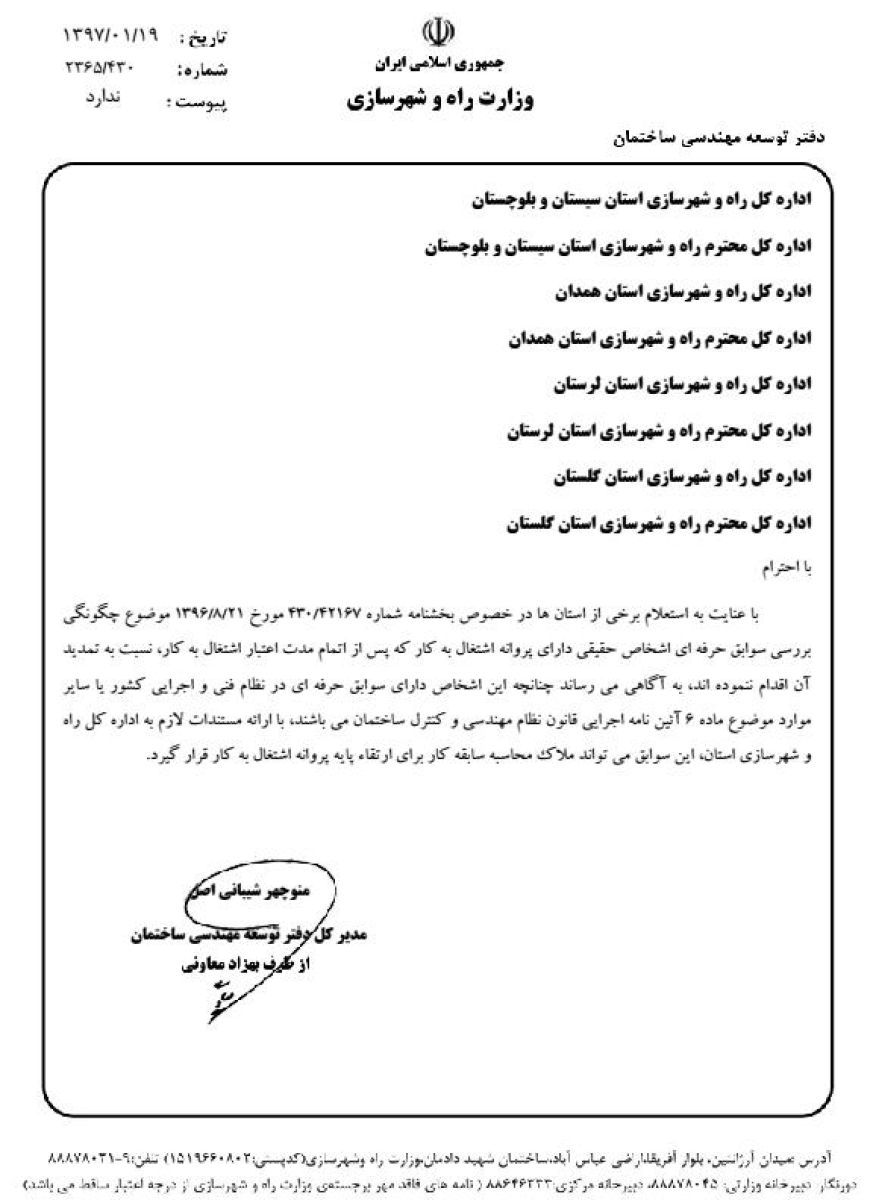 جمهوری اسلامی ایران
وزارت راه و شهرسازی
تاریخ : ۱۳۹۷/۰۱/۱۹
شماره: ۲۳۶۵/۴۳۰
پیوست : ندارد
دفتر توسعه مهندسی ساختمان
اداره کل راه و شهرسازی استان سیستان و بلوچستان
اداره کل محترم راه و شهرسازی استان سیستان و بلوچستان
اداره کل راه و شهرسازی استان همدان
اداره کل محترم راه و شهرسازی استان همدان
اداره کل راه و شهرسازی استان لرستان
اداره کل محترم راه و شهرسازی استان لرستان
اداره کل راه و شهرسازی استان گلستان
اداره کل محترم راه و شهرسازی استان گلستان
با احترام
با عنایت به استعلام برخی از استان ها در خصوص بخشنامه شماره ۴۳۰/۴۲۱۶۷ مورخ ۱۳۹۶/۸/۲۱ موضوع چگونگی
بررسی سوابق حرفه ای اشخاص حقیقی دارای پروانه اشتغال به کار که پس از اتمام مدت اعتبار اشتغال به کار، نسبت به تمدید
آن اقدام ننموده اند، به آگاهی می رساند چنانچه این اشخاص دارای سوابق حرفه ای در نظام فنی و اجرایی کشور یا سایر
موارد موضوع ماده ۶ آئین نامه اجرایی قانون نظام مهندسی و کنترل ساختمان می باشند، با ارائه مستندات لازم به اداره کل راه
و شهرسازی استان، این سوابق می تواند ملاک محاسبه سابقه کار برای ارتقاء پایه پروانه اشتغال به کار قرار گیرد.
منوچهر شیبانی اصل
مدیر کل دفتر توسعه مهندسی ساختمان
از طرف بهزاد معاونی
آدرس :میدان آرژانتین، بلوار آفریقا،اراضی عباس آباد،ساختمان شهید دادمان،وزارت راه وشهرسازی(کدپستی:۱۵۱۹۶۶۰۸۰۲) تلفن:۹-۸۸۸۷۸۰۳۱
دورنگار دبیرخانه وزارتی: ۸۸۸۷۸۰۴۵، دبیرخانه مرکزی:۸۸۶۴۶۲۳۳ ( نامه های فاقد مهر برجسته‌ی وزارت راه و شهرسازی از درجه اعتبار ساقط می باشد)